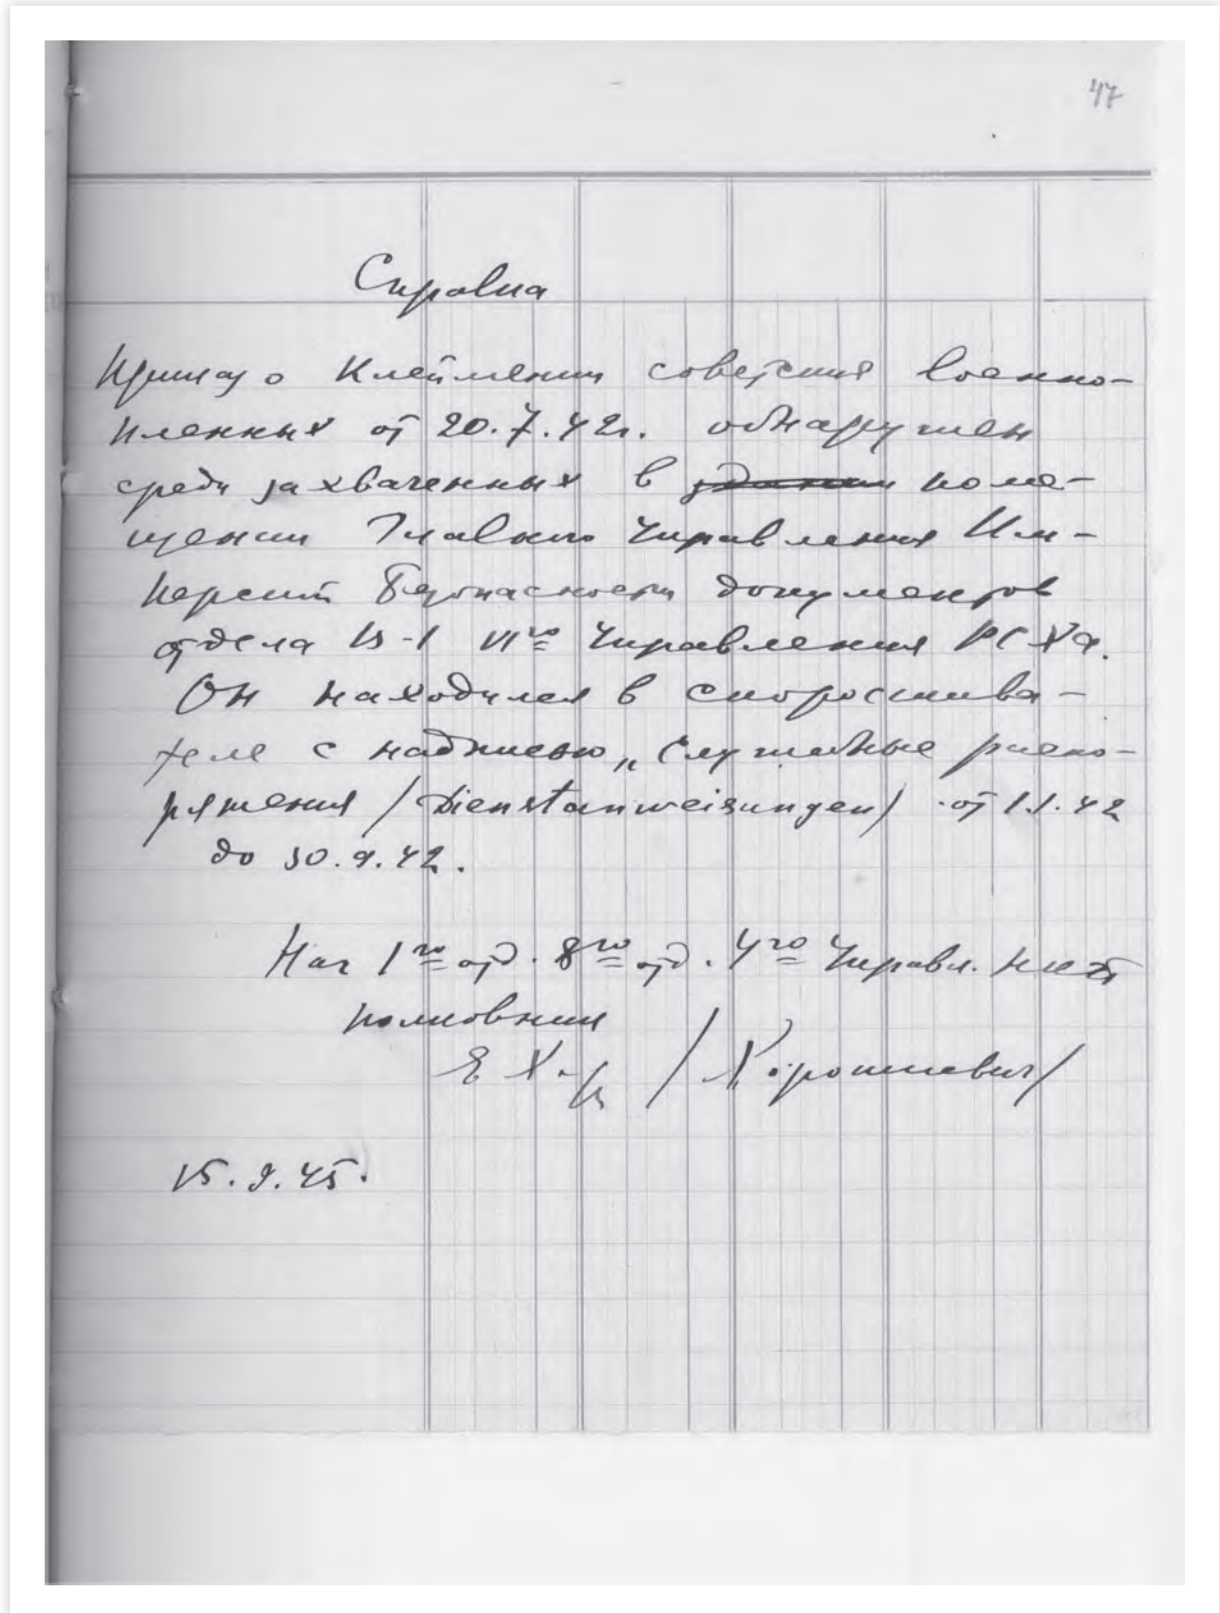 47
Справка
Приказ о клеймении советских военно-
пленных от 20.7.42г. обнаружен
среди захваченных в здании поме-
щении Главного Управления Им-
перской Безопасности документов
отдела 
VIго Управления РСХА.
Он находился в скоросшива-
теле с надписью „Служебные распо-
ряжения /Dienstanweisungen/ от 1.1.42
до 30.9.42.
Нач 1го отд. 8го отд. 4го Управл.
полковник
/Хорошкевич/
15.9.45.